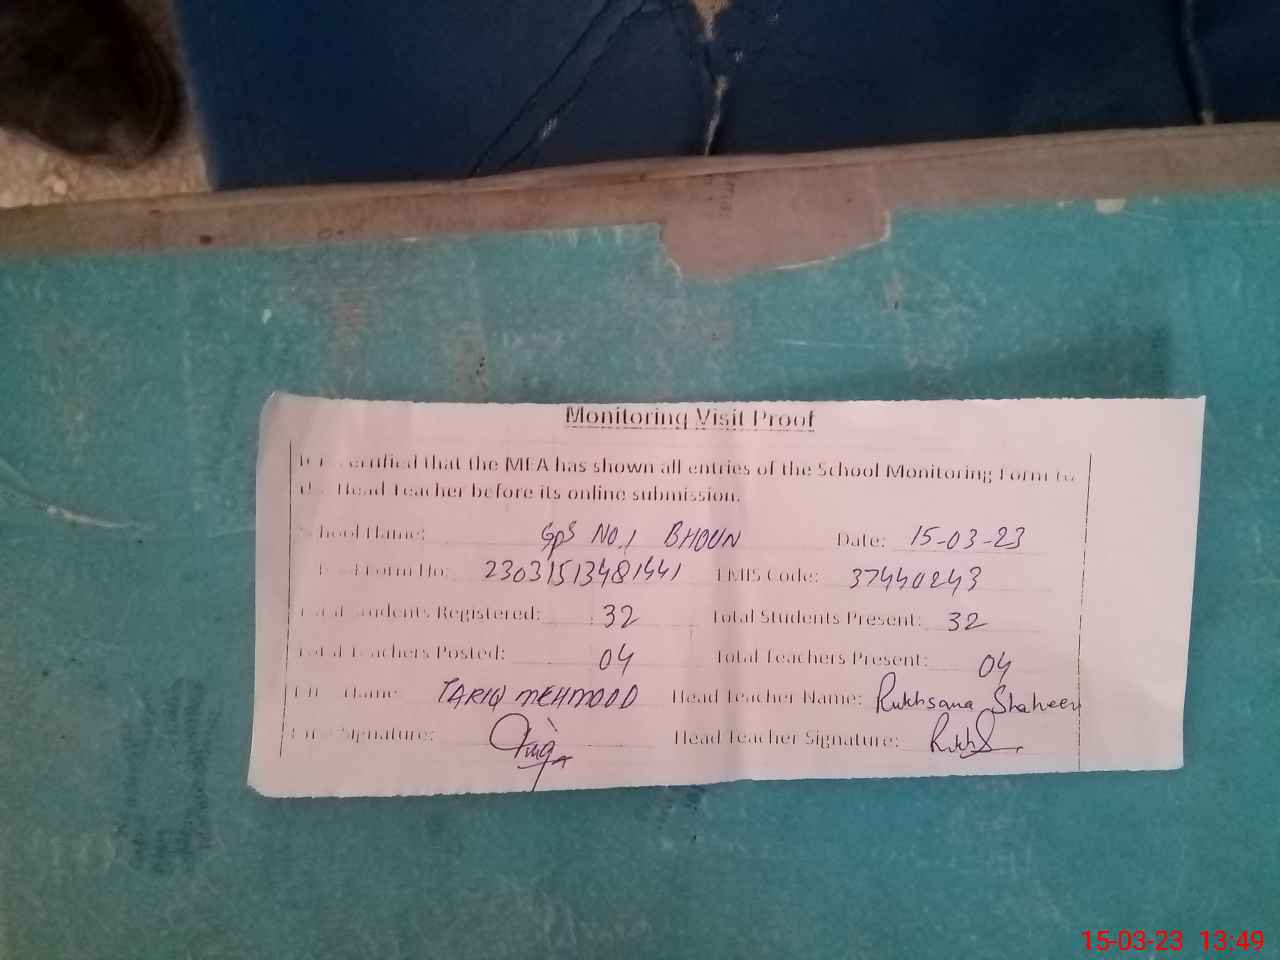 Monitoring Visit Proof
certified that the MEA has shown all entries of the School Monitoring Form to
the Head Teacher before its online submission.
School Name: GPS NO.1 BHOUN Date: 15-03-23
Form No: 23031513481441 EMIS Code: 37440243
Total Students Registered: 32 Total Students Present: 32
Total Teachers Posted: 04 Total Teachers Present: 04
Name: TARIQ MEHMOOD Head Teacher Name: Rukhsana Shaheen
Signature: Head Teacher Signature: Rukh S.
15-03-23 13:49